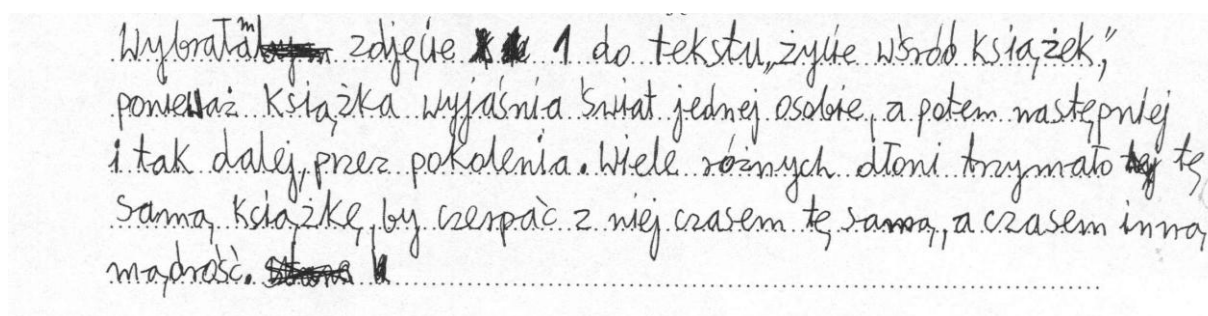 Wybrałam zdjęcie 1 do tekstu „życie wśród książek,"
ponieważ książka wyjaśnia świat jednej osobie, a potem następnej
i tak dalej, przez pokolenia. Wiele różnych dłoni trzymało tę
samą książkę, by czerpać z niej czasem tę samą, a czasem inną
mądrość.